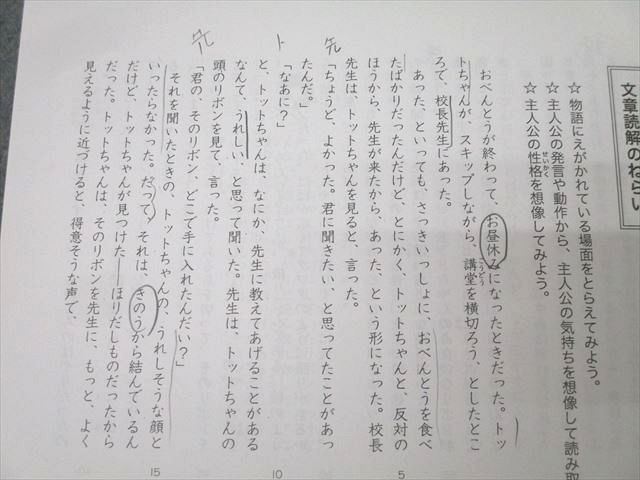 文章読解のねらい
☆ 物語にえがかれている場面をとらえてみよう。
☆ 主人公の発言や動作から、主人公の気持ちを想像して読み取
☆ 主人公の性格を想像してみよう。
せいかく
おべんとうが終わって、お昼休みになったときだった。トッ
トちゃんが、スキップしながら、講堂を横切ろう、としたとこ
こうどう
ろで、校長先生にあった。
あった、といっても、さっきいっしょに、おべんとうを食べ
たばかりだったんだけど、とにかく、トットちゃんと、反対の
ほうから、先生が来たから、あった、という形になった。校長
5
先生は、トットちゃんを見ると、言った。
先
「ちょうど、よかった。君に聞きたい、と思ってたことがあっ
たんだ。」
ト
「なあに?」
と、トットちゃんは、なにか、先生に教えてあげることがある
10
なんて、うれしい、と思って聞いた。先生は、トットちゃんの
頭のリボンを見て、言った。
先
「君の、そのリボン、どこで手に入れたんだい?」
それを聞いたときの、トットちゃんの、うれしそうな顔と
いったらなかった。だって、それは、きのうから結んでいるん
だけど、トットちゃんが見つけた――ほりだしものだったから
15
だった。トットちゃんは、そのリボンを先生に、もっと、よく
見えるように近づけると、得意そうな声で、